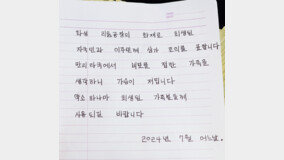 화성 리튬공장의 화재로 희생된
자국민과 이주민께 삼가 조의를 표합니다
만리 타국에서 비보를 접한 가족을
생각하니 가슴이 저립니다
약소하나마 희생된 가족분들께
사용되길 바랍니다
2024년 7월 어느날.